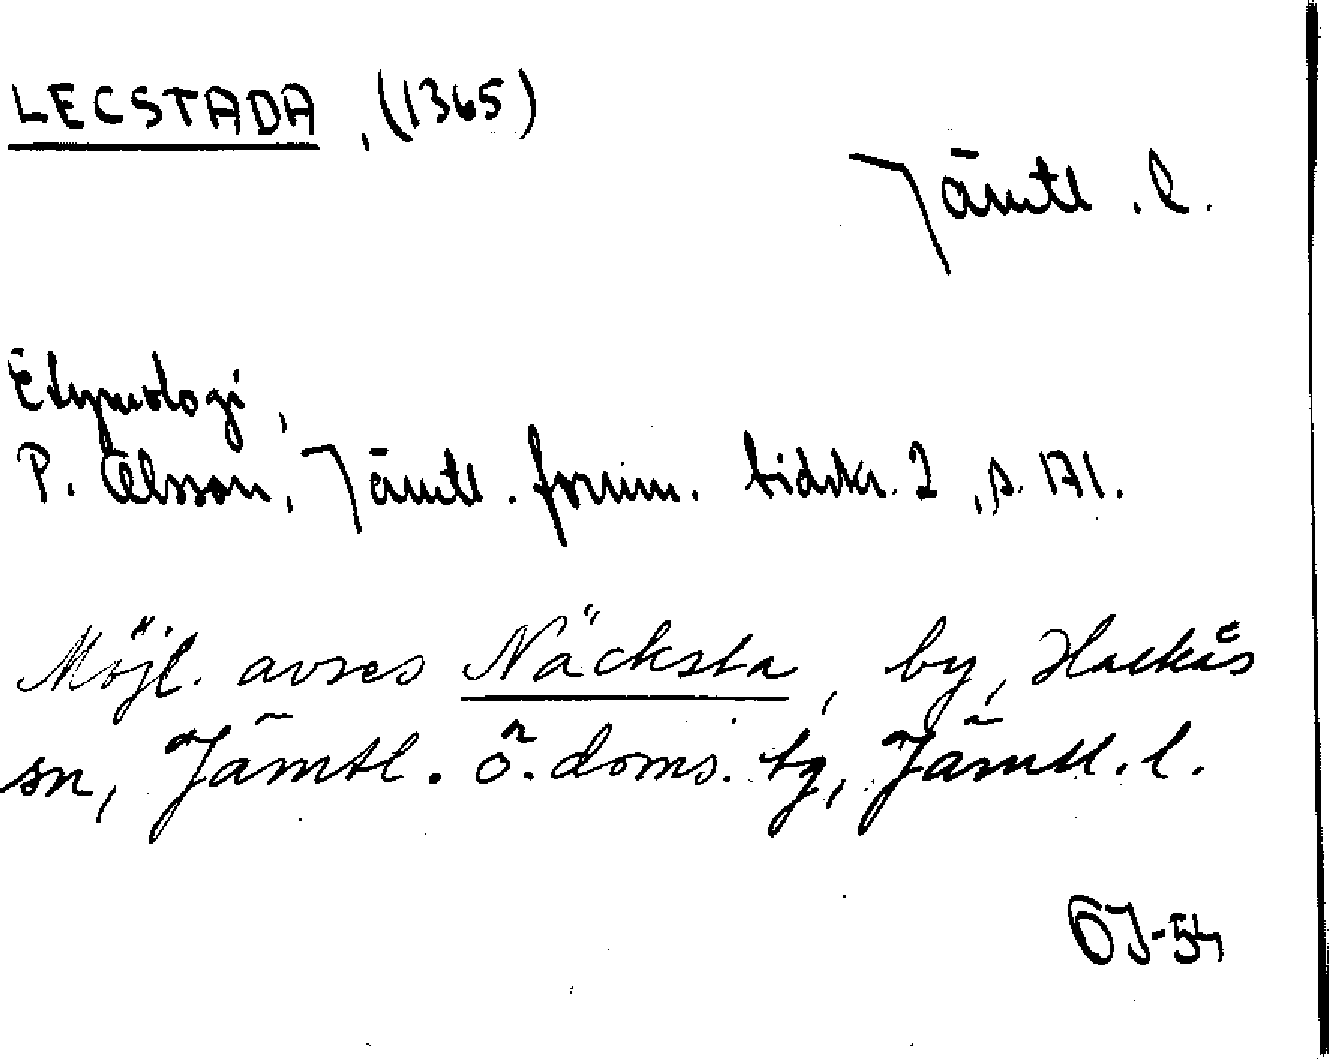 LECSTADA, (1365)
Jämtl. l.
Etymologi,
P. Olsson, Jämtl. fornm. tidskr. 2, s. 171.
Möjl. avses Näcksta, by, Hackås
sn, Jämtl. ö. doms. tg, Jämtl. l.
ÖJ-54